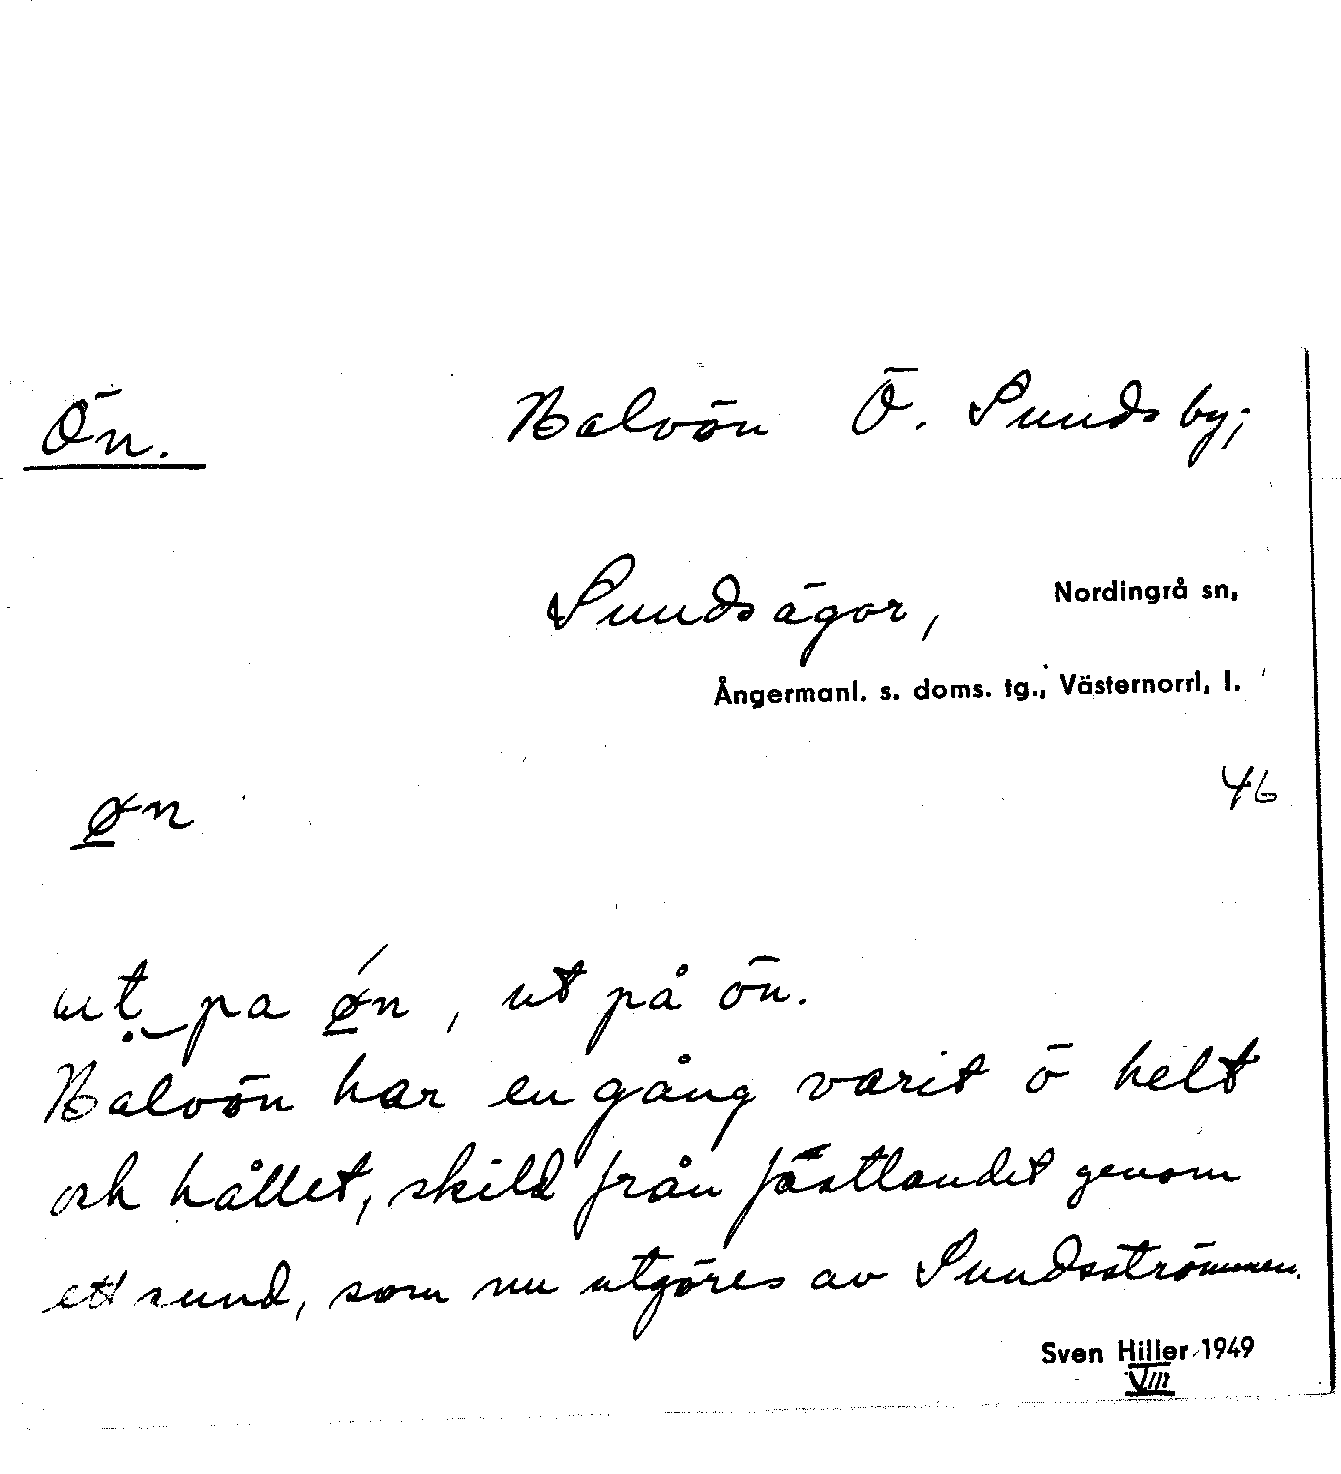 Ön. Halvön Ö. Sundsby;
Sundsägor, Nordingrå sn,
Ångermanl. s. doms. tg., Västernorrl. l.
øn 46
ut pa øn, ut på ön.
Halvön har en gång varit ö helt
och hållet, skild från fastlandet genom
ett sund, som nu utgöres av Sundsströmmen.
Sven Hiller 1949
VIII